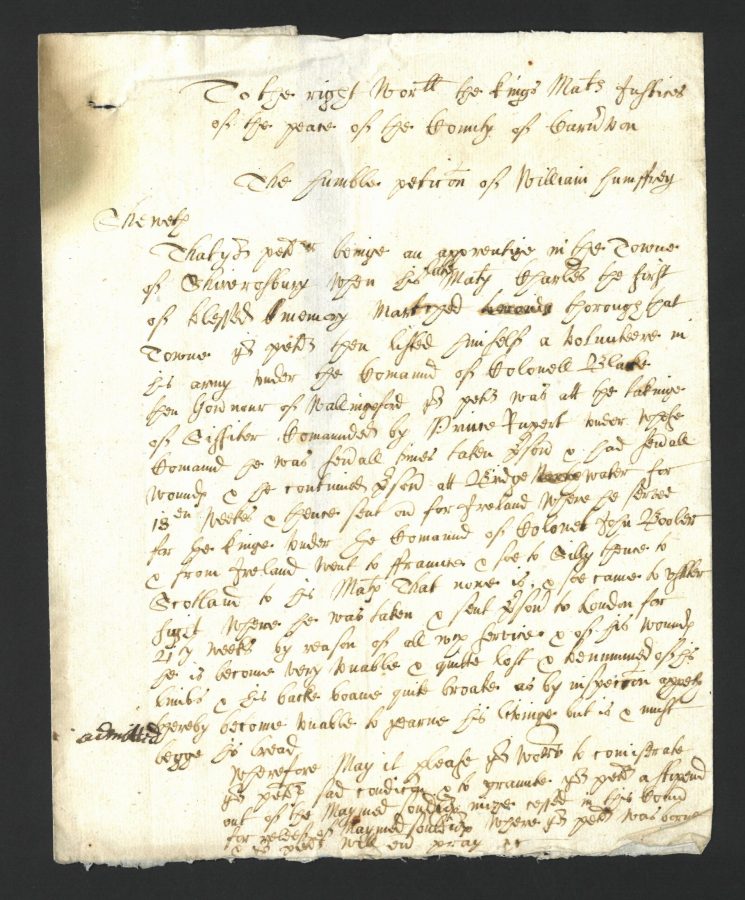 To the right Wor:ll the kings Mat:s Justices
of the peace of the County of Carn'von
The humble petic̄on of William Humffrey
Sheweth
That yr pet:r beinge an apprentize in the Towne
of Shiwrosbury when his late Maty Charles the first
of blessed memory Marched thorough that
Towne yr petr then listed himself a Volunteere in
his army vnder the Comaund of Colonell Blake
then Gov'nour of Walingeford yr petr was att the takinge
of Comaunded by Prince Rupert vnder whose
Comaund he was sev'all times taken p'son & had sev'all
wounds & he continued p'son att Bridge water for
18en weekes & thence sent on for Ireland where he served
for the kinge vnder the Comaund of Colonel John
& from Ireland went to ffraunce & soe to Silly thence to
Scotland to his Maty That none is, & soe came to
fight where he was taken & sent p'son to London for
weekes by reason of all wch service & of his wounds
he is become very vnable & quite lost & benummed of his
limbs & his backe boane quite broake as by inspecc̄on appeth
thereby become vnable to yearne his livinge but is & must
admitted
begge his bread
Wherefore May it please yr worps to considrate
yr petrs sad condic̄on & to graunte yr petr a stipend
out of the Maymed in this Count
for releefe of Maymed souldrs where yr petr was borne
& yr petr will eu' pray &c